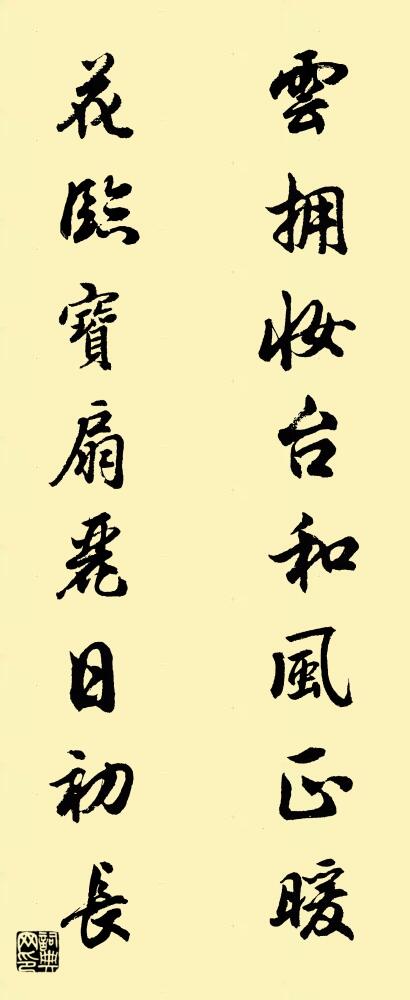 雲拥妝台和風正暖
花臨寶扇麗日初長
詞典网印